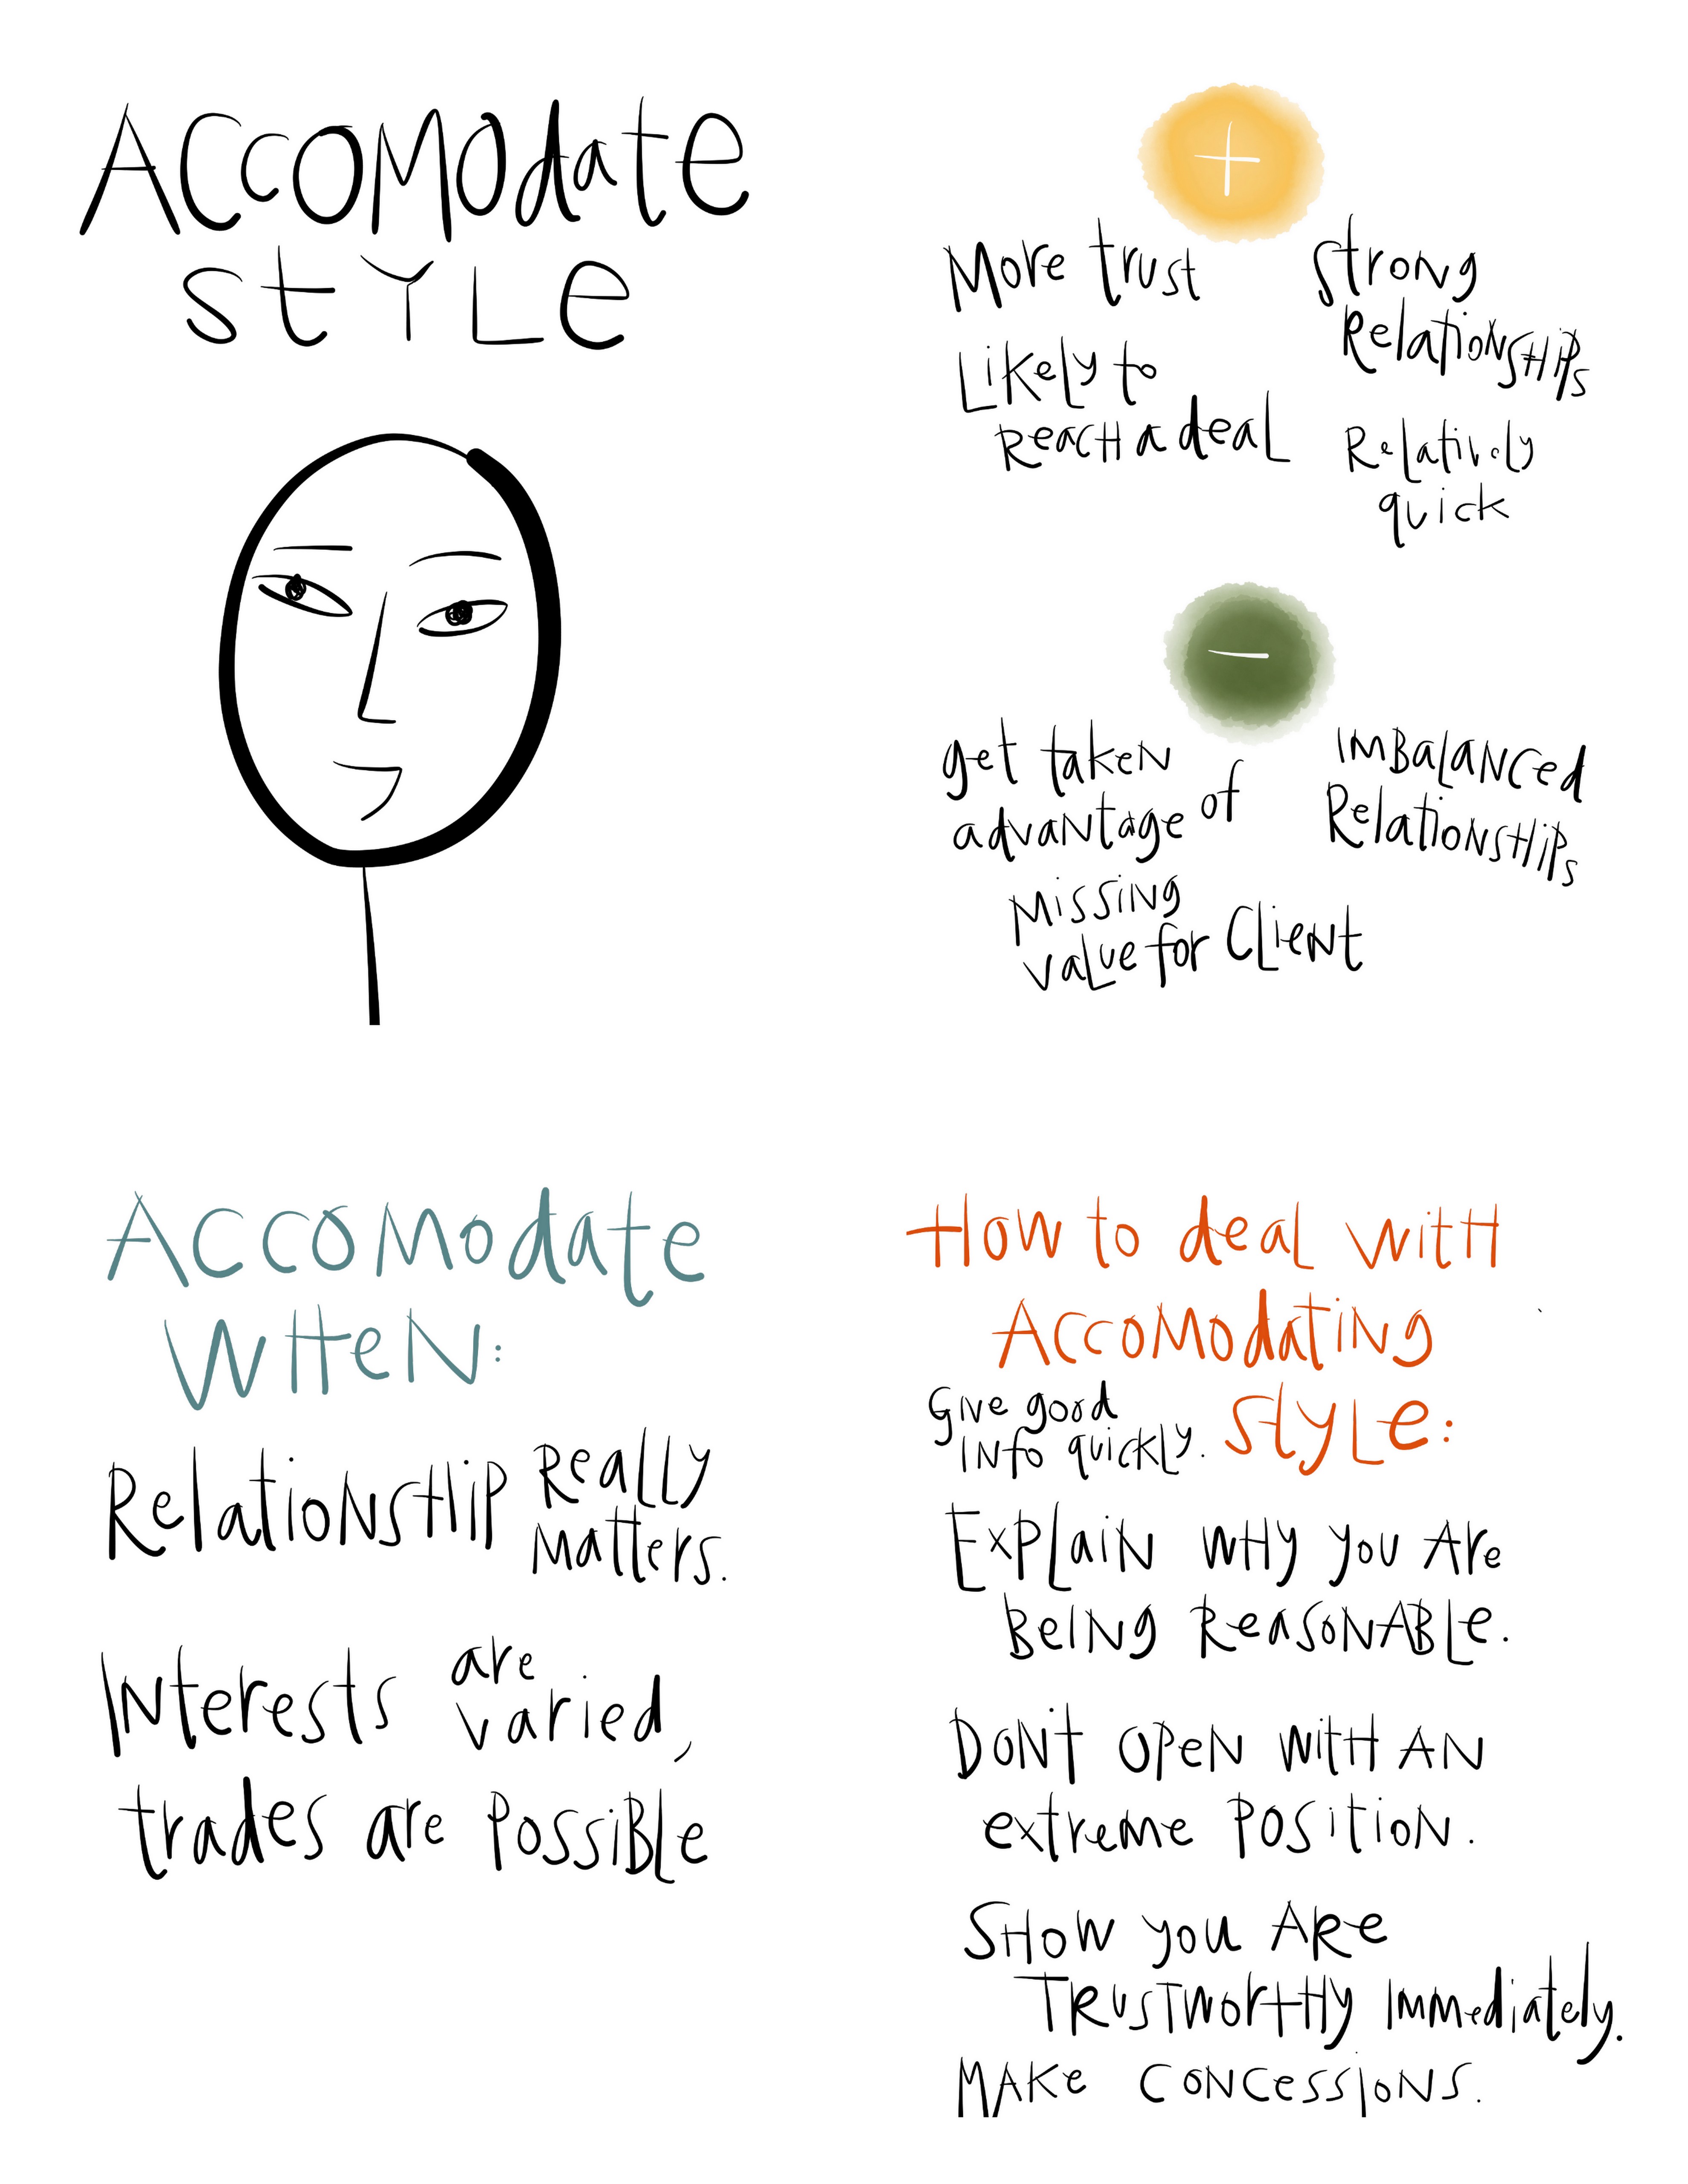 ACCOMOdate
StYLe
+
More trust
Likely to
Reach a deal
Strong
RelationSHips
Relatively
quick
−
get taken
advantage of
Missing
value for Client
IMBaLaNCed
RelationSHips
ACCOModate
WHeN:
RelationSHip Really
Matters.
Interests are
varied,
trades are PossiBle
How to deaL WitH
ACCOModatiNg
StyLe:
Give good
INfo quickly.
ExPLaiN WHy you Are
BeiNg ReasoNABLe.
DoNt OPeN WitH AN
extreme Position.
SHow you ARe
TRusTWortHy Immediately.
MAKe CoNCessioNs.